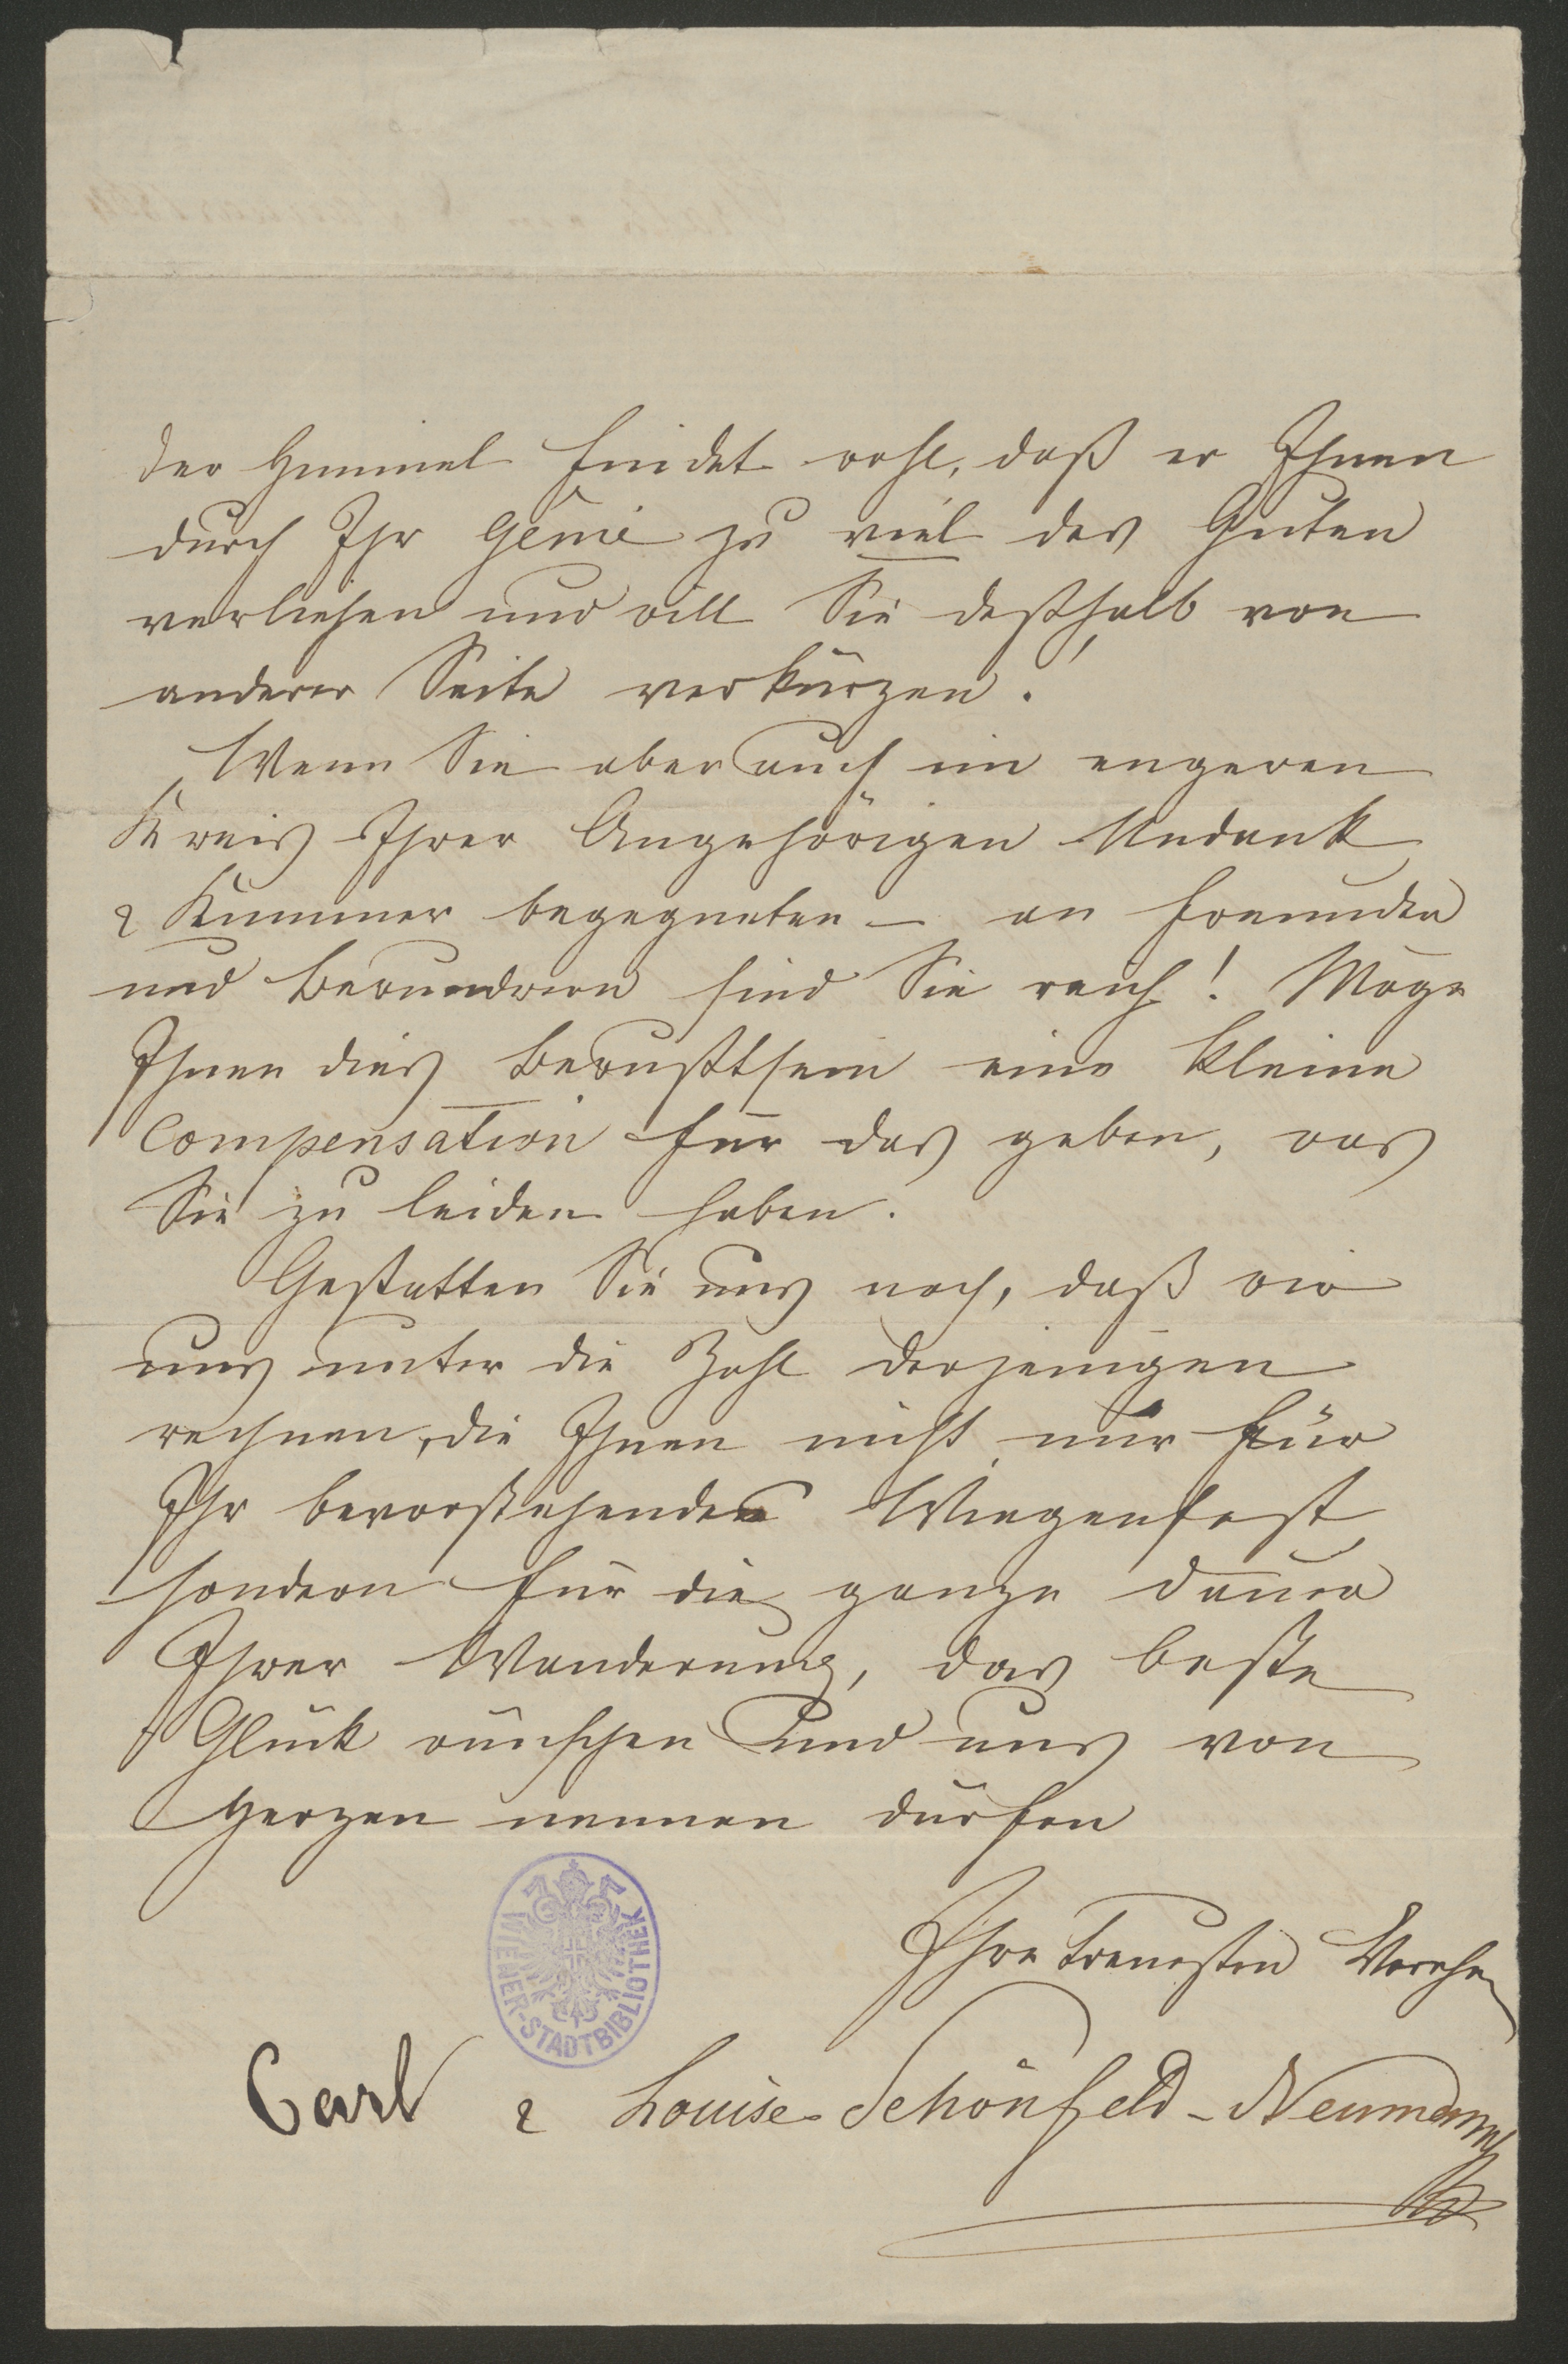 der Himmel findet wohl, daß er Ihnen
durch Ihr Génie zu viel des Guten
verliehen und will Sie deßhalb von
anderer Seite verkürzen!
Wenn Sie aber auch im engeren
Kreis Ihrer Angehörigen Undank
& Kummer begegneten – an Freunden
und Bewunderern sind Sie reich! Möge
Ihnen dies Bewußtsein eine kleine
Compensation für das geben, was
Sie zu leiden haben.
Gestatten Sie uns noch, daß wir
uns unter die Zahl derjenigen
rechnen, die Ihnen nicht nur für
Ihr bevorstehendes Wiegenfest
sondern für die ganze Dauer
Ihrer Wanderung, das beste
Glück wünschen und uns von
Herzen nennen dürfen
Ihre treuesten Verehrer
Carl & Louise Schönfeld-Neumann
WIENER-STADTBIBLIOTHEK